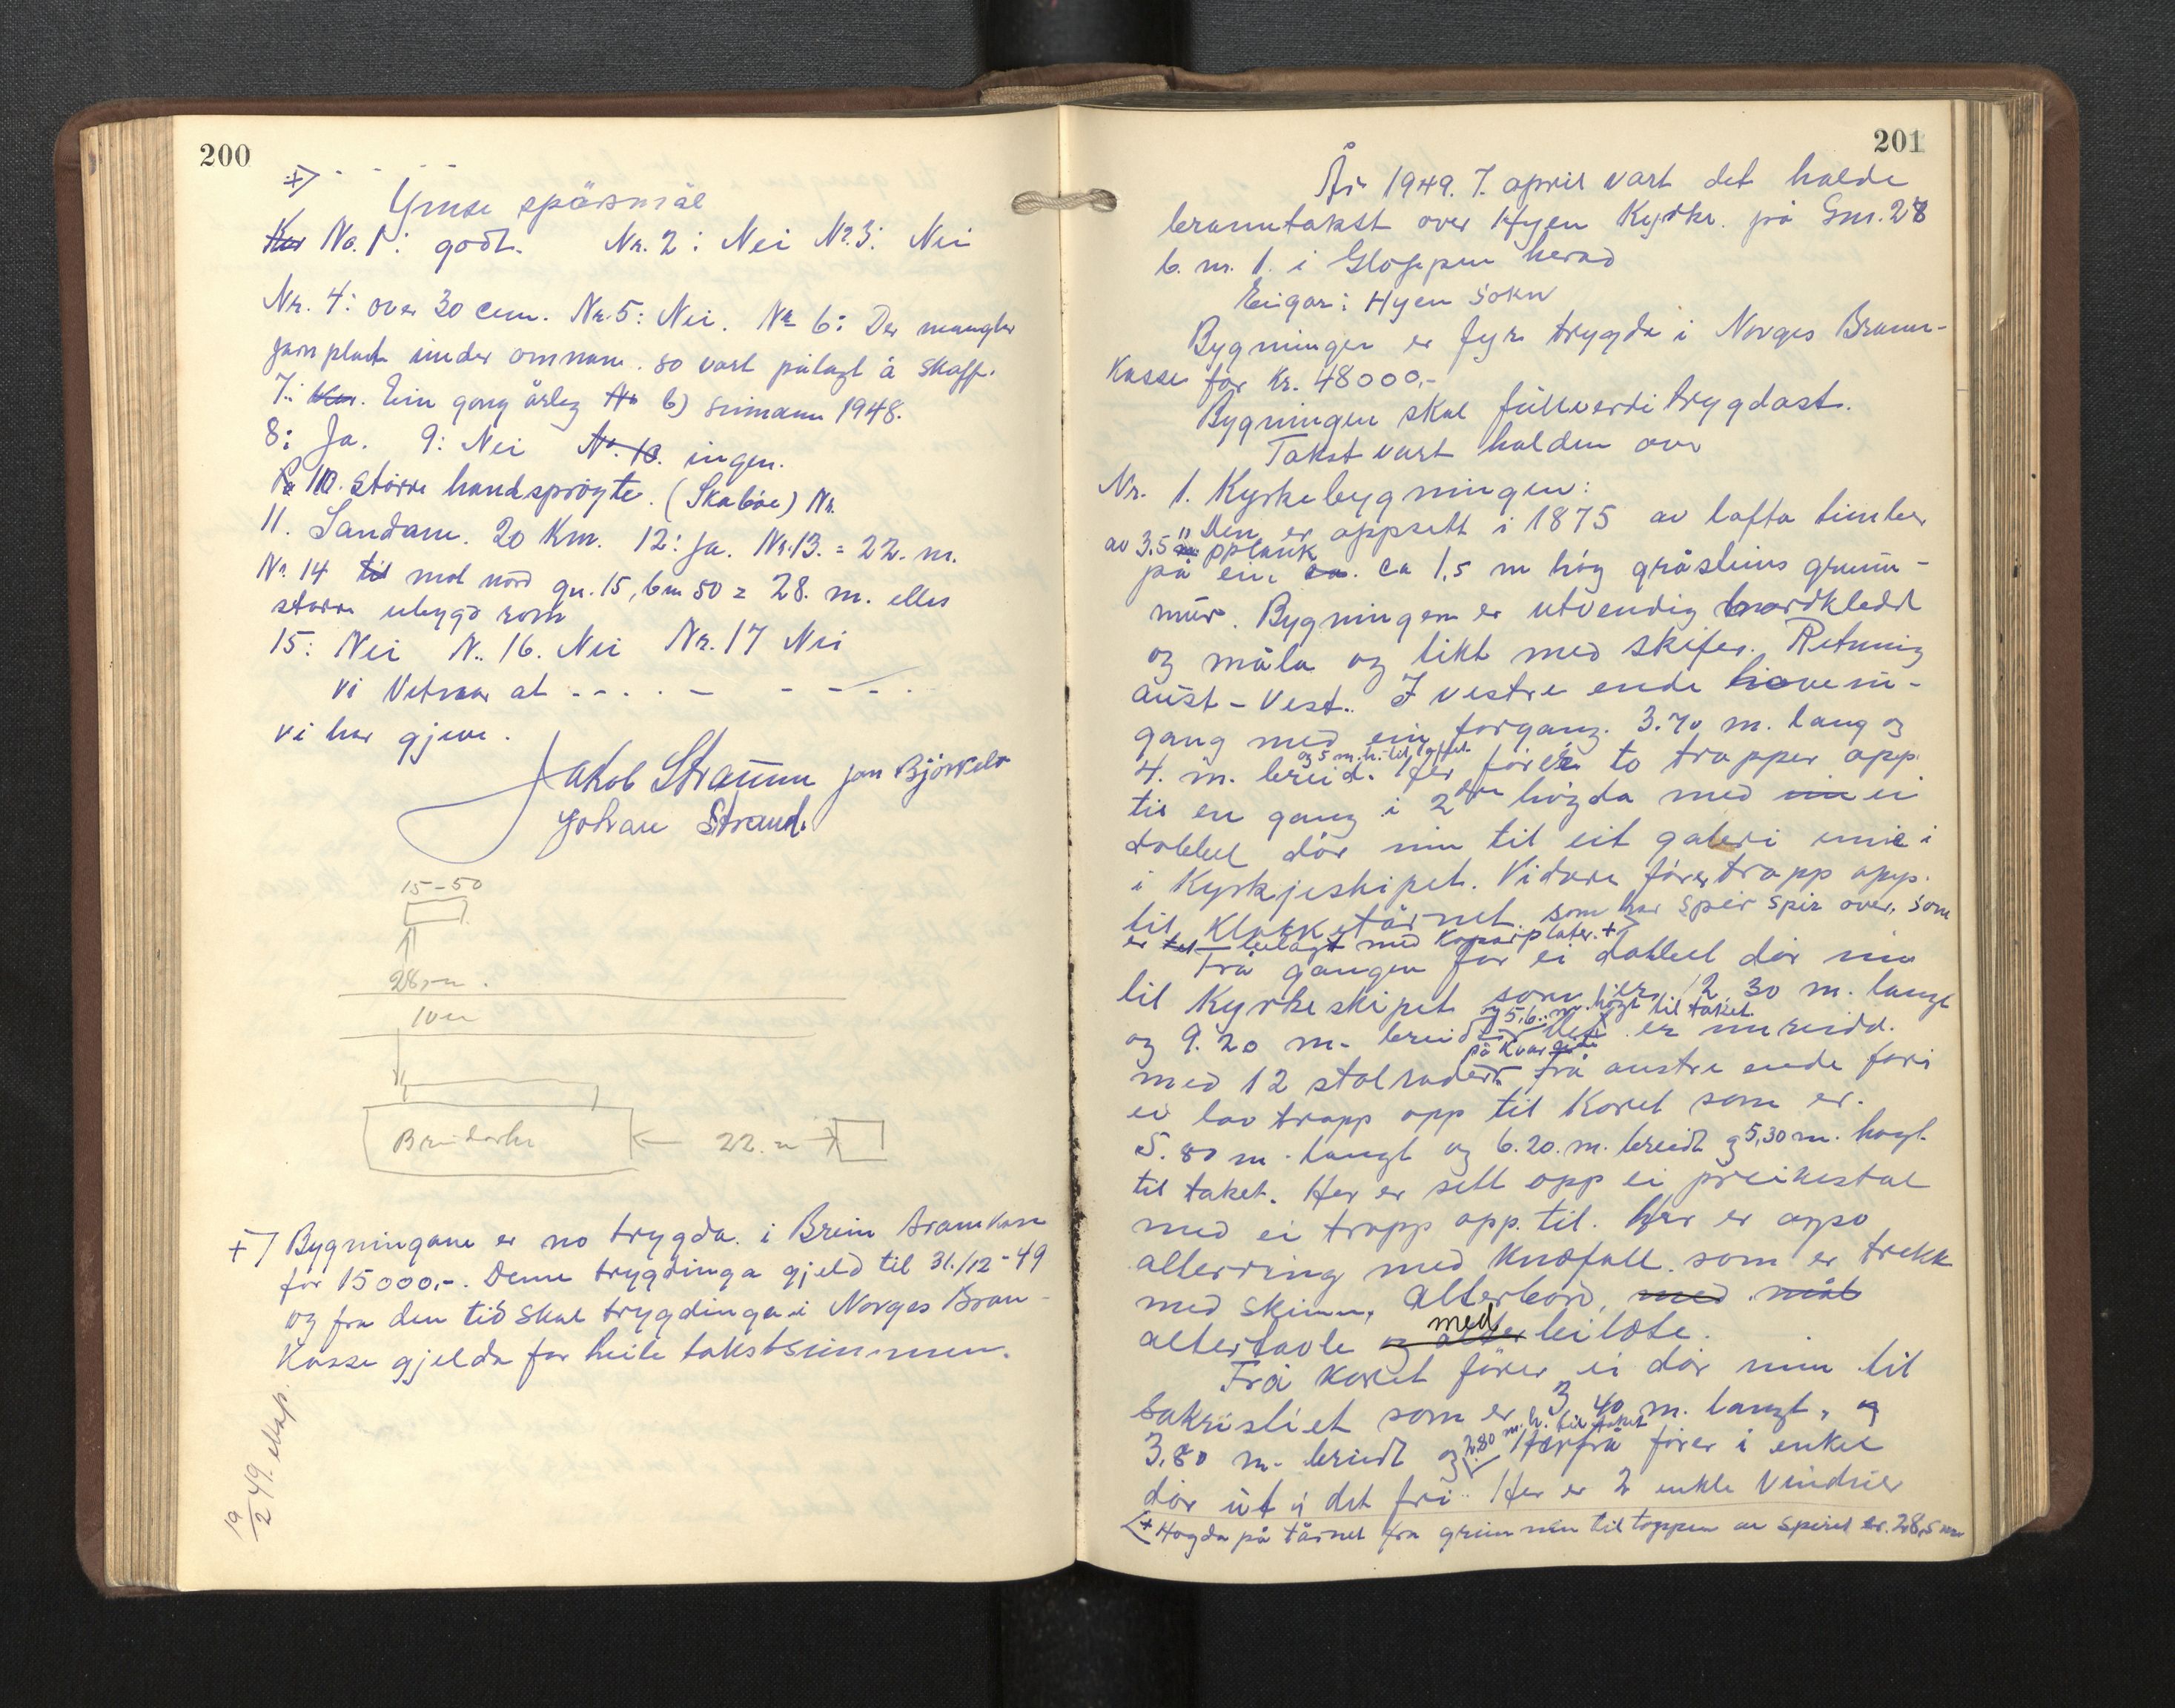 200
+)
Ymse spörsmål
No. 1: godt. Nr. 2: Nei Nr. 3: Nei
Nr. 4: over 30 cem. Nr. 5: Nei. Nr 6: Der mangler
jarnplate under omnane. so vart pålagt å skaff.
7: Ein gong årleg b) sumaren 1948.
8: Ja. 9: Nei No. 10. ingen.
10. større handsprøyte. (Skabøe) Nr.
11. Sandane. 20 Km. 12: ja. Nr. 13. = 22. m.
Nr. 14 mot nord gn. 15, bn 50 = 28. m. elles
større ubygd rom
15: Nei N. 16. Nei Nr. 17 Nei
Vi Vitnar at - - - . - - - - .
vi har gjeve.
Jakob Straume Jon Bjørkelo
Johan Strand.
15-50
28 m.
10 m
22. m
+) Bygningane er no trygda i Breim Brannkase
for 15000,-. Denne trygdinga gjeld til 31/12-49
og fra den tid skal trygdinga i Norges Bran-
Kasse gjelda for heile takstsummen.
19/2 49.
201
År 1949. 7. april vart det halde
branntakst over Hyen Kyrkje. på Gnr. 28
b. nr. 1. i Gloppen herad
Eigar: Hyen Sokn
Bygningen er fyrr trygda i Norges Brann-
Kasse for Kr. 48000,-
Bygningen skal fullverdi trygdast.
Takst vart halden over
Nr. 1. Kyrkebygningen:
Den er oppsett i 1875 av lafta timber
av 3.5" pplank
på ein ca. ca 1,5 m høg gråsteins grunn-
mur. Bygningen er utvendig bordkledd
og måla og tekt med skifer. Retning
aust-Vest. I vestre ende hoveni-
gang med ein forgang. 3.70 m. lang og
og 5 m. h. til loftet
4. m. breid. Her fører to trapper opp
til en gang i 2 dre høgda med ei
dobbel dør inn til eit galeri inne i
i Kyrkjeskipet. Vidare fører trapp opp
til Klokketårnet som har spir spir over, som
er belagt med Koparplater. +)
Frå gangen før ei dobbel dør inn
til Kyrkeskipet som er 12,30 m. langt
og 5,6. m. høgt til taket.
og 9.20 m. breidt. Det er innreidd.
på kvar
med 12 stolrader. Frå austre ende føri
ei lav trapp opp til Koret som er.
5.80 m. langt og 6.20. m. breidt og 5,30 m. høgt
til taket. Her er sett opp ei preikestol
med ei trapp opp. til. Her er også
alterring med Knefall. som er trekk
med skinn, Alterbord, med mål
altertavle og alter med bilete.
Frå koret fører ei dør inn til
Sakristiet som er 3,40 m. langt, og
3.80 m. breidt og 2.80 m. h. til taket Herfrå fører i enkel
dør ut i det fri. Her er 2 enkle Vinduer
+ Høgda på tårnet fra grunnen til toppen av spiret er. 28,5 m